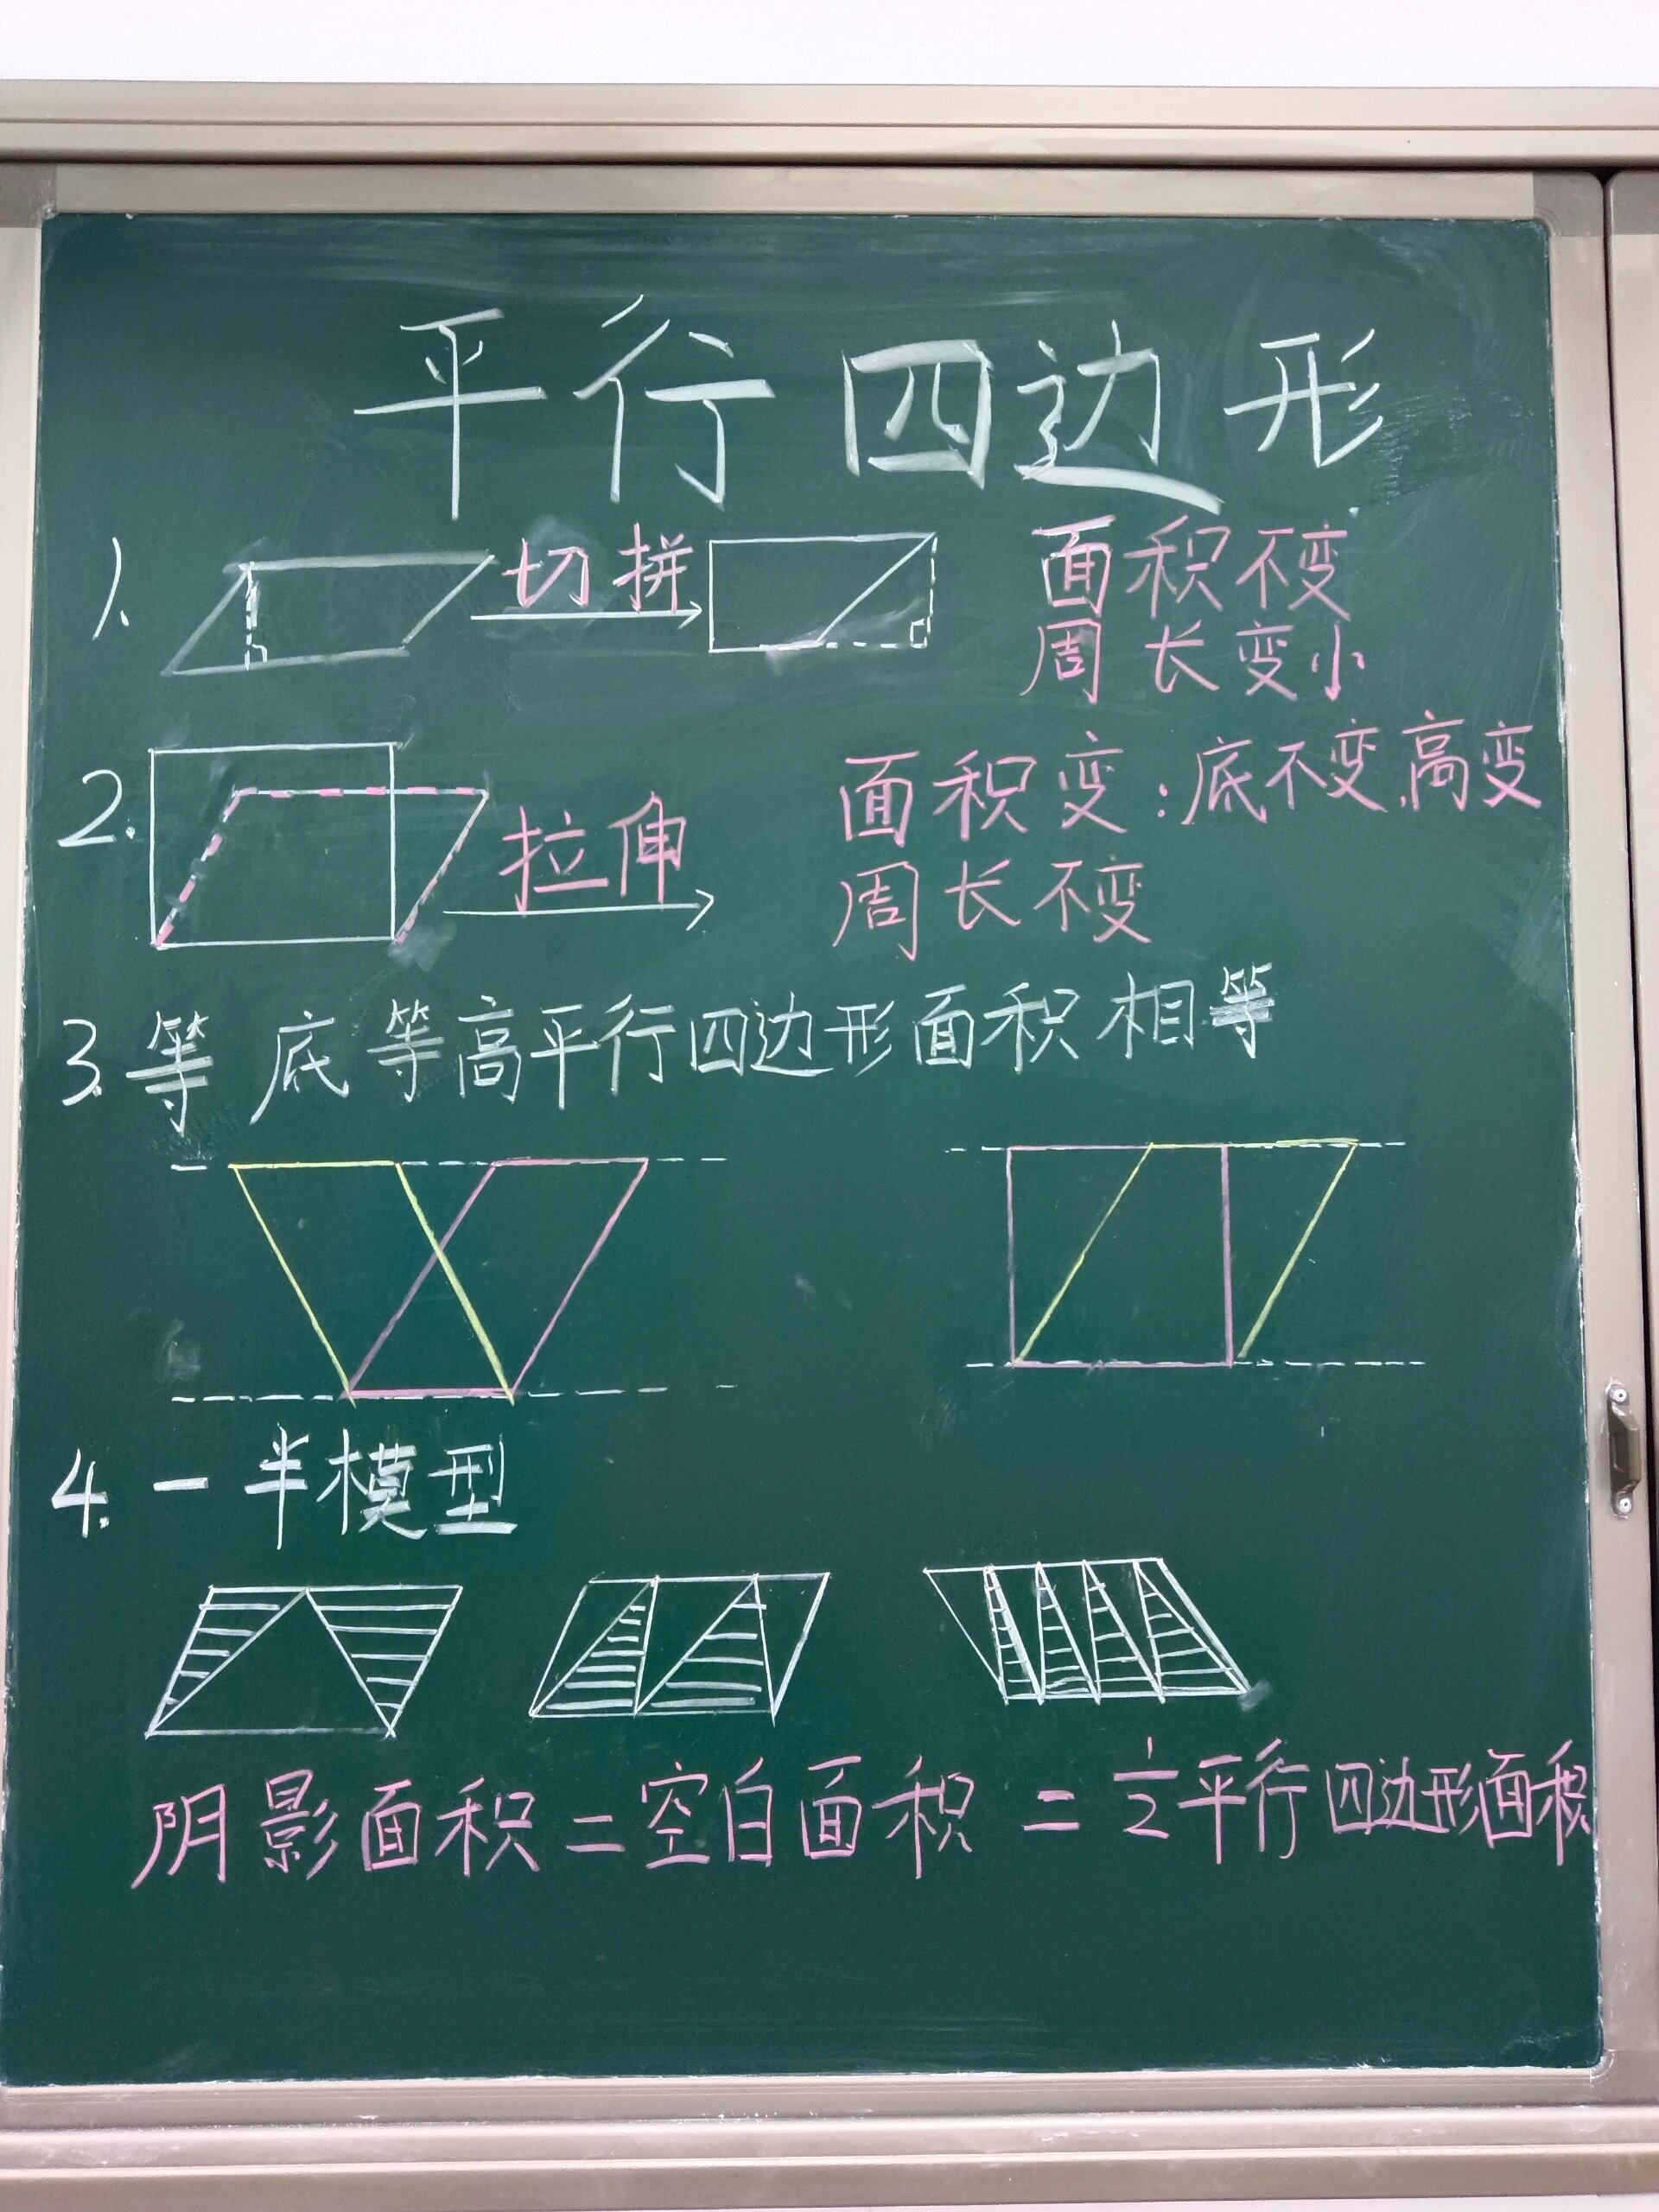 平行四边形
1. 切拼 面积不变
周长变小
2. 拉伸 面积变:底不变,高变
周长不变
3. 等底等高平行四边形面积相等
4. 一半模型
阴影面积=空白面积=1/2平行四边形面积